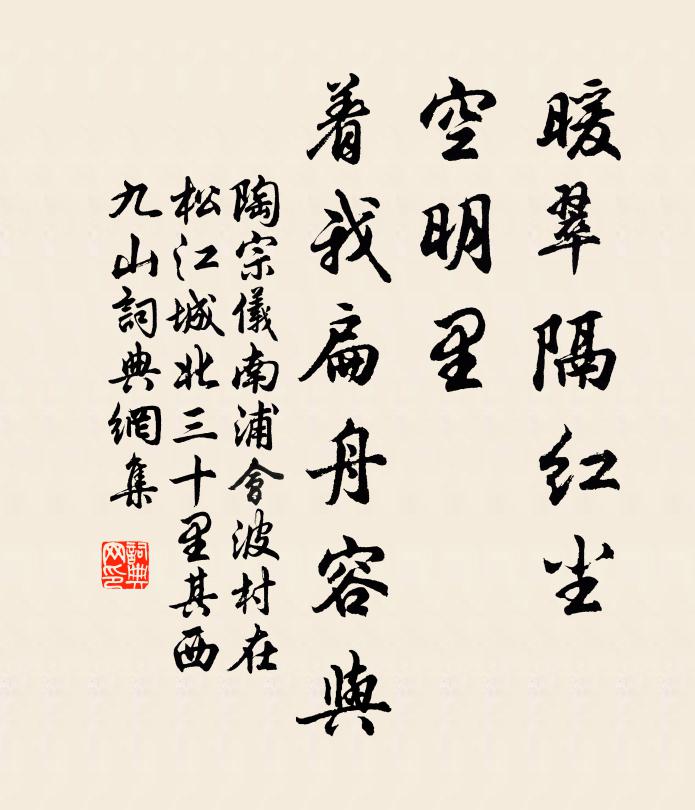 暖翠隔红尘
空明里
着我扁舟容與
陶宗儀南浦會波村在
松江城北三十里其西
九山詞典網集
詞典网印